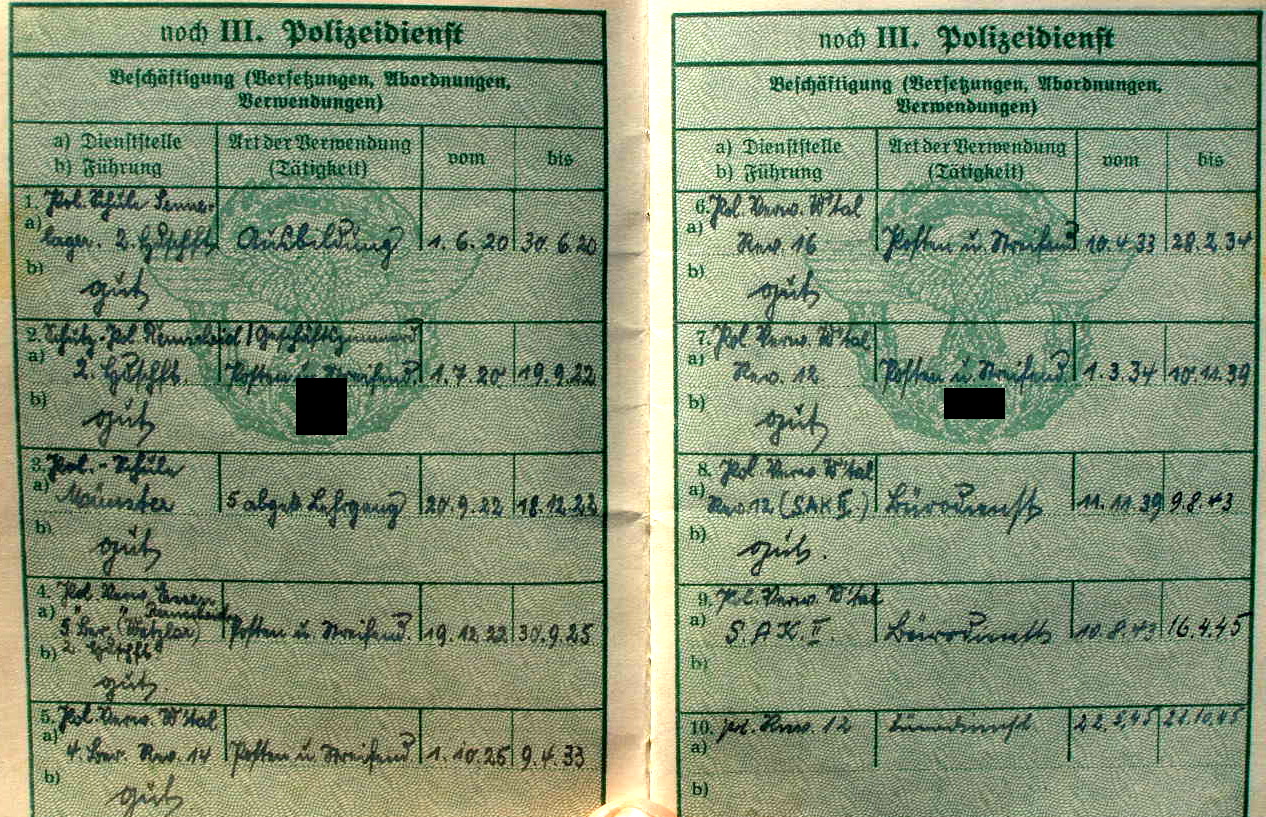 noch III. Polizeidienst
Beschäftigung (Versetzungen, Abordnungen,
Verwendungen)
a) Dienststelle
b) Führung
Art der Verwendung
(Tätigkeit)
vom
bis
1. Pol. Schule Senne-
a) lager. 2. Hdschft. Ausbildung 1. 6. 20 30. 6. 20
b) gut
2. Schutz-Pol. Remscheid Geschäftszimmerd.
a) 2. Hdschft. Posten u. Streifend. 1. 7. 20 19. 9. 22
b) gut
3. Pol.-Schule
a) Münster Lehrgang 20. 9. 22 18. 12. 22
b) gut
4. Pol. Verw.
" " Remscheid
a) 5. Ber. (Wetzlar) Posten u. Streifend. 19. 12. 22 30. 9. 25
b) 2. Hdschft.
gut
5. Pol. Verw. W'tal
a) 4. Ber. Rev. 14 Posten u. Streifend. 1. 10. 25 9. 4. 33
b) gut
noch III. Polizeidienst
Beschäftigung (Versetzungen, Abordnungen,
Verwendungen)
a) Dienststelle
b) Führung
Art der Verwendung
(Tätigkeit)
vom
bis
6. Pol. Verw. W'tal
a) Rev. 16 Posten u. Streifend 10. 4. 33 28. 2. 34
b) gut
7. Pol. Verw. W'tal
a) Rev. 12 Posten u. Streifend. 1. 3. 34 10. 11. 39
b) gut
8. Pol. Verw. W'tal
a) Rev 12 (SAK II.) Bürodienst 11. 11. 39 9. 8. 43
b) gut.
9. Pol. Verw. W'tal
a) S. A. K. II. Bürodienst 10. 8. 43 16. 4. 45
b)
10. Pol. Rev. 12 22. 5. 45 21. 10. 45
a)
b)